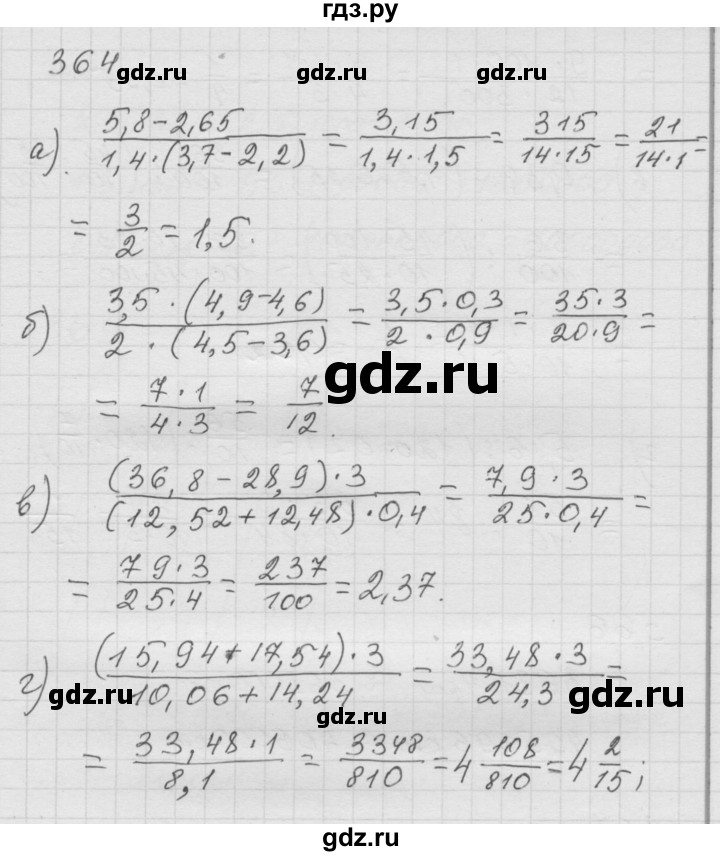 гдз.ру
364
gdz.ru gdz.ru gdz.ru
а) (5,8-2,65)/(1,4·(3,7-2,2)) = 3,15/(1,4·1,5) = 315/(14·15) = 21/(14·1) =
= 3/2 = 1,5.
б) (3,5·(4,9-4,6))/(2·(4,5-3,6)) = (3,5·0,3)/(2·0,9) = (35·3)/(20·9) =
gdz.ru
= (7·1)/(4·3) = 7/12.
в) ((36,8-28,9)·3)/((12,52+12,48)·0,4) = (7,9·3)/(25·0,4) =
= (79·3)/(25·4) = 237/100 = 2,37.
г) ((15,94+17,54)·3)/(10,06+14,24) = (33,48·3)/24,3 =
gdz.ru gdz.ru
gdz.ru
= (33,48·1)/8,1 = 3348/810 = 4 108/810 = 4 2/15;
gdz.ru